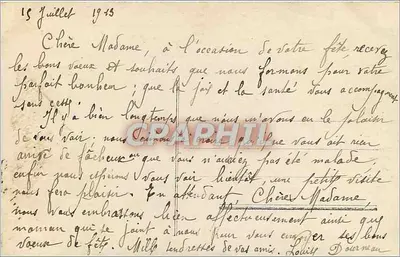 15 Juillet 1913
Chère Madame, à l'occasion de votre fête recevez
les bons voeux et souhaits que nous formons pour votre
parfait bonheur ; que la joie et la santé vous accompagnent
sans cesse.
Il y a bien longtemps que nous n'avons eu le plaisir
de vous voir. nous
arrivé de fâcheux ou que vous n'auriez pas été malade.
enfin nous espérons vous voir bientôt une petite visite
nous fera plaisir. En attendant Chère Madame,
nous vous embrassons bien affectueusement ainsi que
maman qui se joint à nous pour vous envoyer ses bons
voeux de fête. Mille tendresses de vos amis. Louis
CPAPHIL